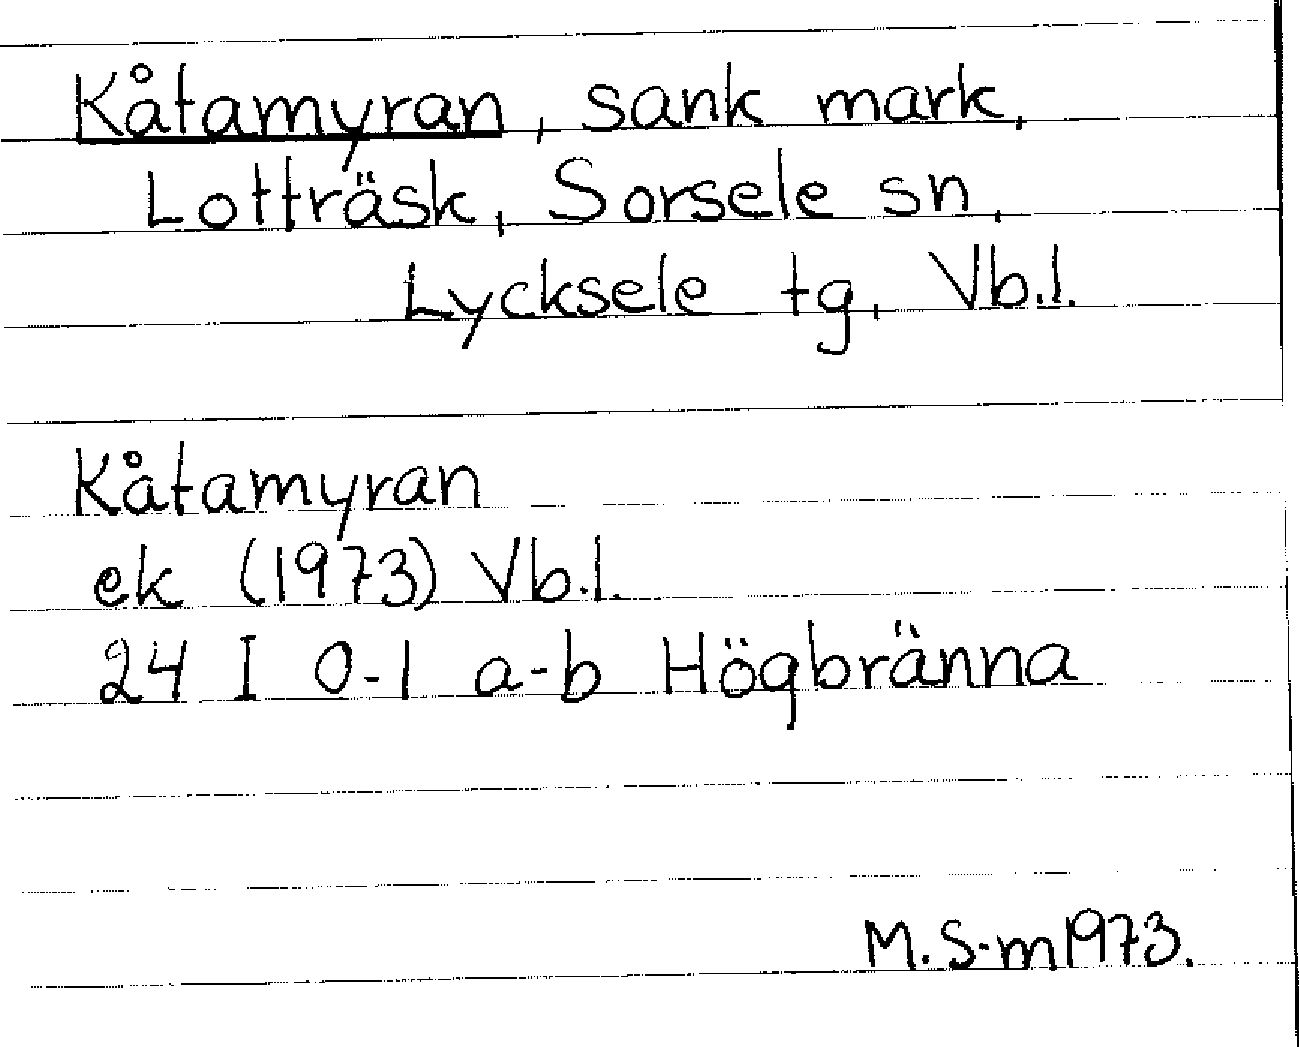 Kåtamyran, sank mark,
Lotträsk, Sorsele sn,
Lycksele tg, Vb.l.
Kåtamyran
ek (1973) Vb.l.
24 I 0-1 a-b Högbränna
M.S-m 1973.